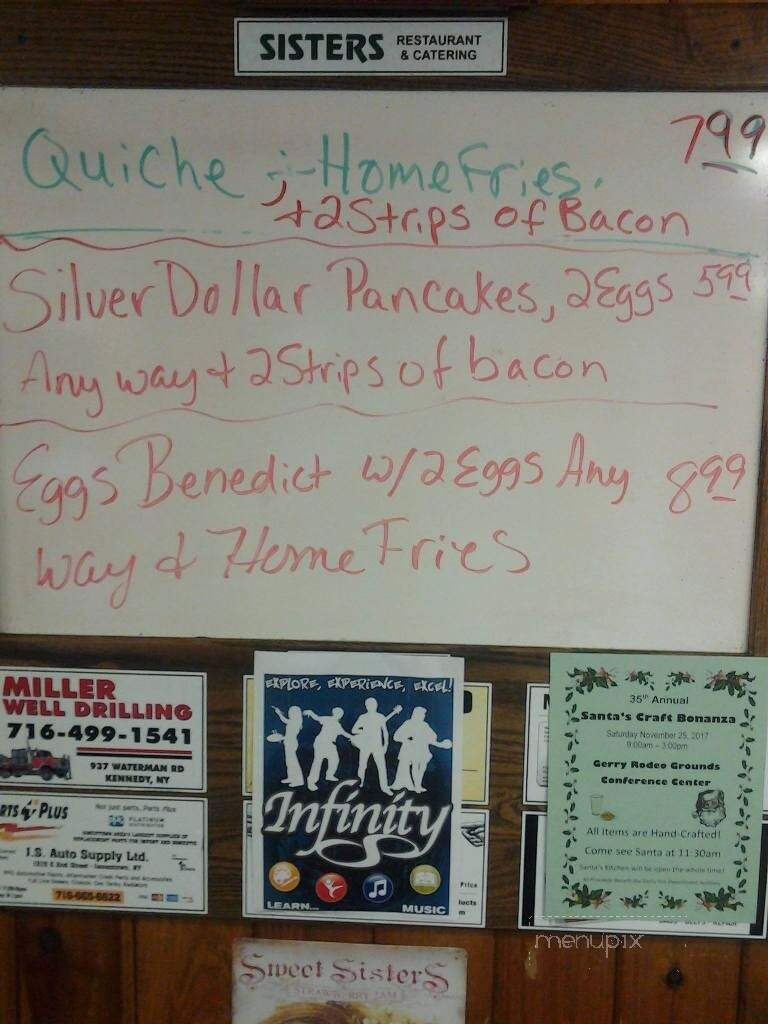 SISTERS RESTAURANT & CATERING
Quiche ; HomeFries. 799
+2 Strips of Bacon
Silver Dollar Pancakes, 2Eggs 599
Any way + 2 Strips of bacon
Eggs Benedict w/2 Eggs Any 899
way & Home Fries
MILLER
WELL DRILLING
716-499-1541
937 WATERMAN RD
KENNEDY, NY
RTS PLUS
Not just parts.. Parts Plus
PLATINUM
J.S. Auto Supply Ltd.
716-665-6622
EXPLORE, EXPERIENCE, EXCEL!
Infinity
LEARN...
MUSIC
Price
lucts
35th Annual
Santa's Craft Bonanza
Saturday November 25, 2017
9:00am - 3:00pm
Gerry Rodeo Grounds
Conference Center
All Items are Hand-Crafted!
Come see Santa at 11:30am
Santa's Kitchen will be open the whole time!
menupix
Sweet Sisters
STRAWBERRY JAM